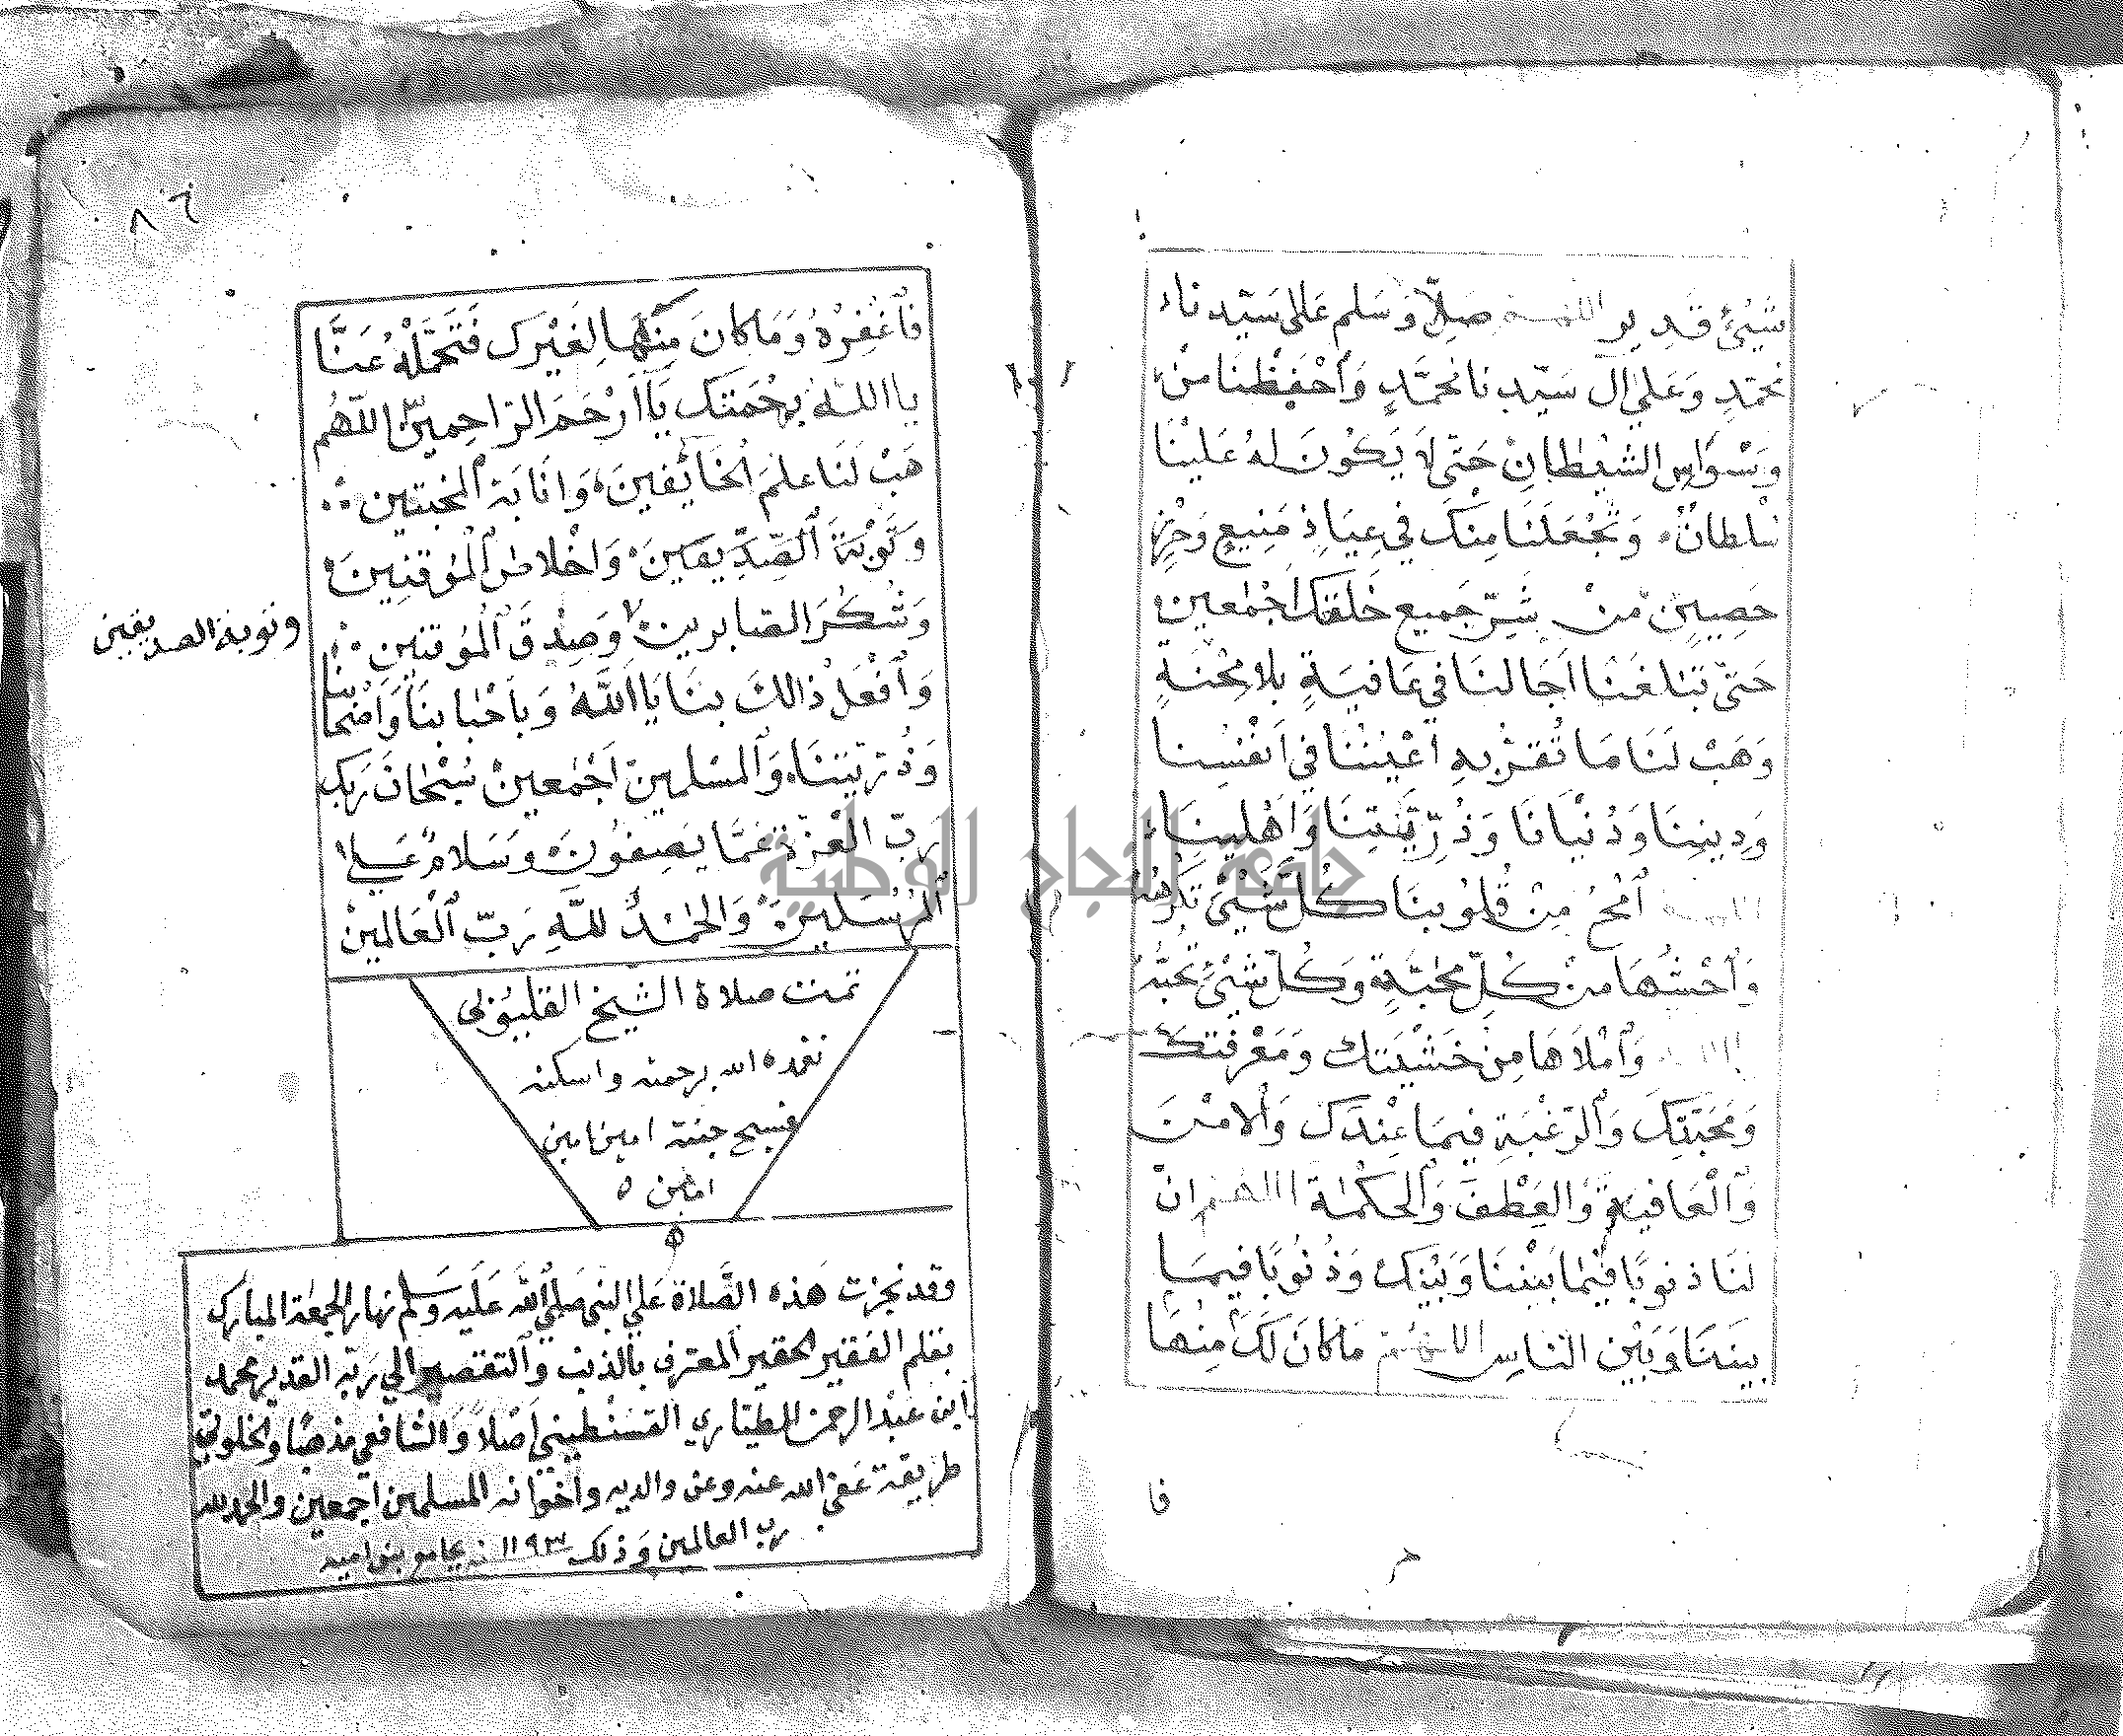 شَيْئٍ قَدِير اللهم صَلِّ وَسَلم عَلى سَيّدِنا
مُحَمّدٍ وَعَلى آل سَيّدِنا مُحَمَّدٍ وَأحْفِظْنَا مِنْ
وَسْوَاسِ الشيْطانِ حَتّى لاَ يَكُونَ لهُ عَلَيْنَا
سُلطانٌ وَتَجْعَلَنَا مِنْكَ في عِيَاذٍ مَنِيعٍ وَحِرْزٍ
حَصِينٍ مِنْ شَرِّ جَميعِ خَلقِكَ اَجْمَعين
حَتّى تبَلغَنَا آجَالنَا في عَافيَةٍ بِلا مِحْنَةٍ
وَهَبْ لَنَا مَا تُقِرُّ بهِ أعْيُنَنَا في اَنْفُسِنا
وَدِينِنَا وَدُنْيَانَا وَذُرِّيَّتِنَا وَاَهْلِينَا
اللهم اَمْحُ مِنْ قُلُوبنَا كُلَّ شَيْئٍ تَكْرَهُهُ
وَاَحْشُهَا مِنْ كُلِّ مَحَبَّةٍ وَكُلِّ شَيْئٍ تُحِبُّهُ
وَاَمْلاَهَا مِنْ خَشْيَتِكَ وَمَعْرِفَتِكَ
وَمَحَبّتِكَ وَالرّغْبَةِ فيمَا عِنْدَكَ وَالامْنَ
وَالْعَافِيَةِ وَالعَطْفِ وَالحِكْمَةِ اللهم اِنَّ
لنَا ذنوبًا فيمَا بَيْنَنَا وَبَيْنَكَ وَذُنُوبًا فيمَا
بَينَنَا وَبَيْنَ الناسِ اللهم مَاكانَ لَكَ مِنْهَا
فا
٨٦
فَاَغْفِرْهُ وَمَا كانَ مِنْهَا لِغَيْرِكَ فَتَحَمَّلْهُ عَنَّا
يا الله بِرَحْمَتِكَ يَا اَرْحَمَ الرّاحِمِينَ اللّهُم
هَبْ لَنَا عِلمَ الْخَائِفينَ وَاِنَابَةَ المخبتين
وَتَوْبَةَ الصِّدِّيقينَ وَاِخْلاصَ الْمُوقنِينَ
ونوبة الصديقين
وَشُكْرَ الصّابرينَ وَصِدْقَ الْمُوقنينَ
وَاَفْعَلْ ذالكَ بنَا يَا اَللَّهُ وَبِاَحْبَابنَا وَاَصْحَابنا
وَذُرّيّتنَا وَالمسْلمينَ اَجْمَعينْ سُبْحَانَ رَبّكَ
رَبّ الْعِزّةِ عَمَّا يَصِفُونَ وَسَلامٌ عَلى
اَلمُرْسَلينَ وَالحَمْدُ لِلَّهِ رَبّ اَلْعَالمينْ
تمت صلاة الشيخ القليُوبي
تغمده الله برحمته واسكنه
فسيح جنته امين امين
امين ٥
وقد نجزت هَذه الصَّلاة عَلى النبى صَلى الله عَليه وَسَلم نهار الجمعة المبارك
بقلم الفقير الحقير المعترف بالذنب والتقصير الي رَبّه القدير محمد
ابن عَبْد الرحمن المطيّاري القسَنْطيني اَصْلاً وَالشافعي مذهبًا والخلوتي
طريقة عَفى الله عنه وعن والديه واخوانه المسلمين اجمعين والحمد لله
رب العالمين وَذلك ١١٩٣ نه بجامع بني اميه
جامعة النجاح الوطنية